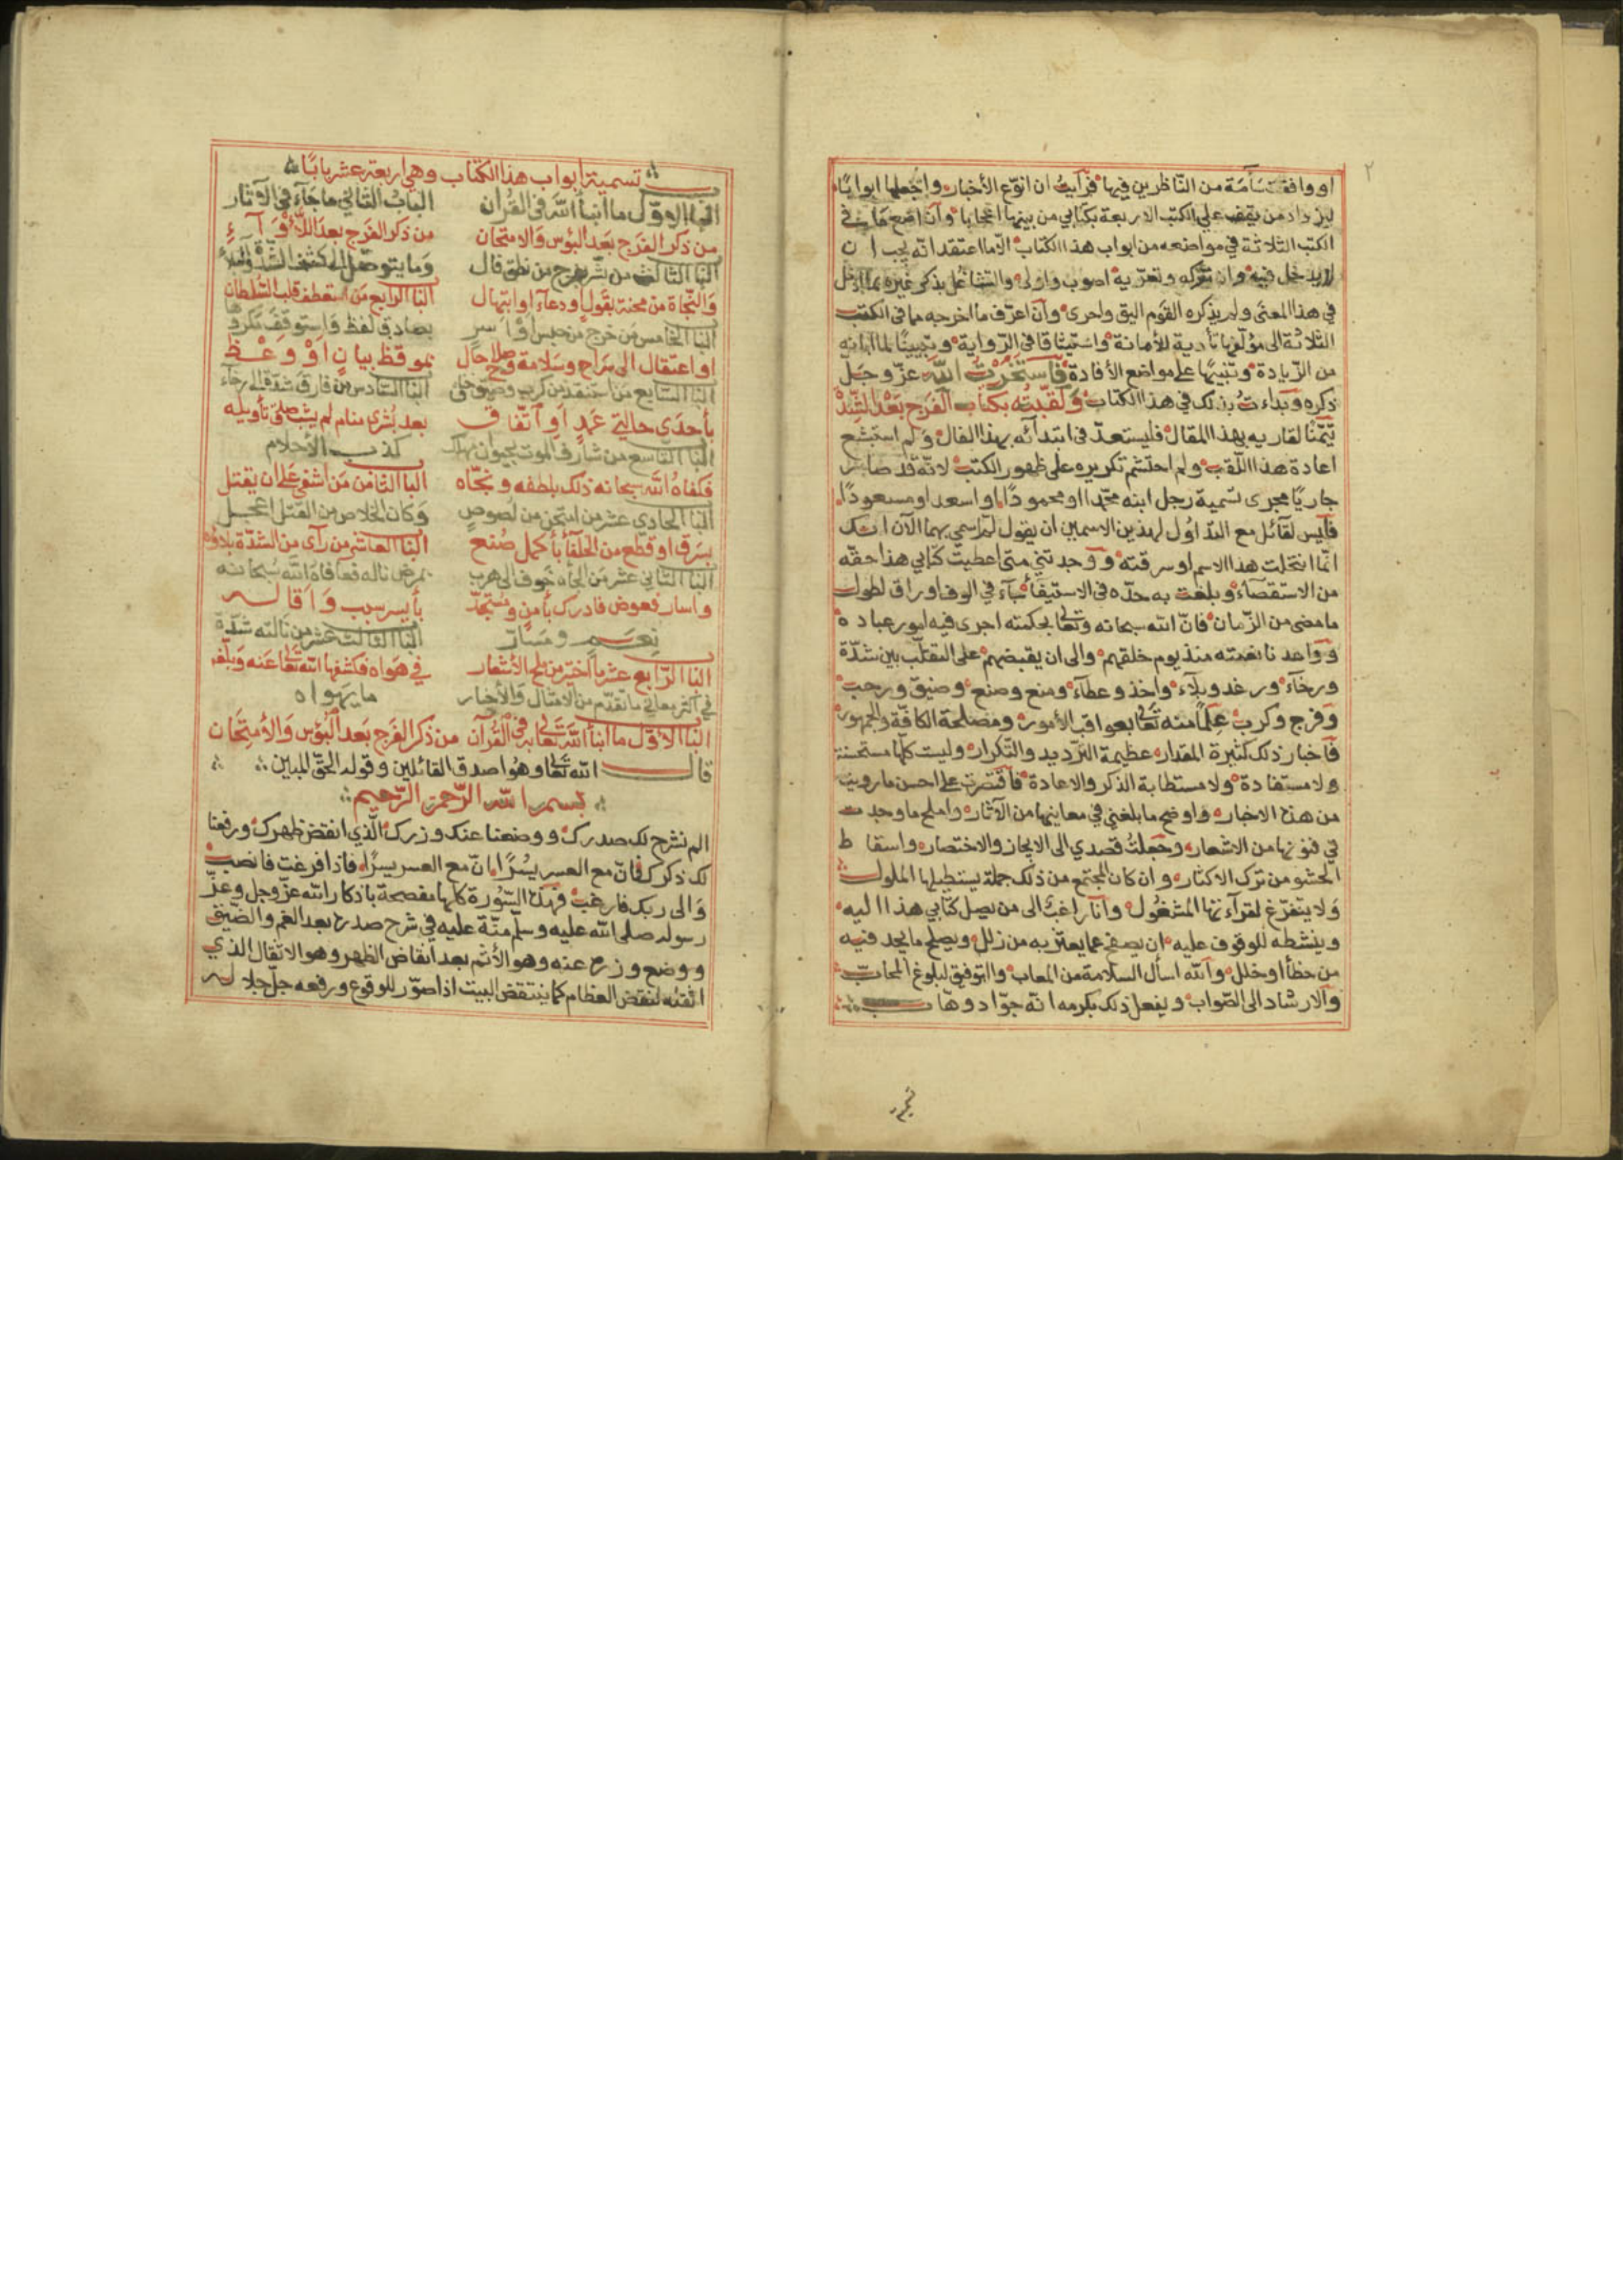 ٢
او وافقت سآمة من الناظرين فيها فرأيت ان انوع الأخبار واجعلها ابوابًا
ليزداد من يقف على الكتب الاربعة بكتابي من بينها اعجابا وان اضع ما في
الكتب الثلاثة في مواضعه من ابواب هذا الكتاب الا ما اعتقد انه يجب ان
لا يدخل فيه وان تركه وتعديه اصوب واولى والتشاغل بذكر غيره مما ادخل
في هذا المعنى ولم يذكره القوم اليق واحرى وان اعترف ما اخرجه مما في الكتب
الثلاثة الى مؤلفيها تأدية للأمانة واستيثاقا في الرواية وتبيينًا لما
من الزيادة وتنبيهًا على مواضع الأفادة فاستخرت الله عز وجل
ذكره وبداءت بذلك في هذا الكتاب ولقبته بكتاب الفرج بعد الشدة
تيمنا لقاريه بهذا المقال فليستعد في ابتدائه بهذا الفال ولم استبشع
اعادة هذا اللقب ولم احتشم تكريره على ظهور الكتب لانه قد صار
جاريًا مجرى تسمية رجل ابنه محمدا او محمودًا او اسعد او مسعودًا
فليس لقائل مع التداول لهذين الاسمين ان يقول لمن سمي بهما الآن انك
انما انتحلت هذا الاسم او سرقته ووجدتني متى اعطيت كتابي هذا حقه
من الاستقصاء وبلغت به حده في الاستيفاء جاء في الوف اوراق لطول
ما مضى من الزمان فان الله سبحانه وتعالى بحكمته اجرى فيه امور عباده
وواعدنا نعمته منذ يوم خلقهم والى ان يقبضهم على التقلب بين شدة
ورخاء ورغد وبلاء واخذ وعطاء ومنع وصنع وضيق ورحب
وفرج وكرب علمًا منه تعالى بعواقب الأمور ومصلحة الكافة والجمهور
فأخبار ذلك كثيرة المقدار عظيمة الترديد والتكرار وليست كلها مستحسنة
ولا مستفادة ولا مستطابة الذكر والاعادة فاقتصرت على احسن ما رويت
من هذه الاخبار واوضح ما بلغني في معانيها من الآثار واملح ما وجدت
في فنونها من الاشعار وجعلت قصدي الى الايجاز والاختصار واسقاط
الحشو من ترك الاكثار وان كان المجتمع من ذلك جملة يستطيلها الملول
ولا يتفرغ لقراءتها المشغول وانا راغب الى من يصل كتابي هذا اليه
وينشطه للوقوف عليه ان يصفح عما يعثر به من زلل ويصلح ما يجد فيه
من خطأ او خلل والله اسأل السلامة من المعاب والتوفيق لبلوغ المحاب
والارشاد الى الصواب ويفعل ذلك بكرمه انه جواد وهاب
تسمية ابواب هذا الكتاب وهي اربعة عشر بابًا
الباب الاول ما انبأ الله في القرآن
من ذكر الفرج بعد البؤس والامتحان
الباب الثاني ما جاء في الآثار
من ذكر الفرج بعد اللأواء
وما يتوصل الى كشف الشدة
الباب الثالث من بشر بفرج من نطق فال
والنجاة من محنة بقول او دعاء او ابتهال
الباب الرابع من استعطف قلب السلطان
بصادق لفظ واستوقف مكروهها
بموقظ بيان او وعظ
الباب الخامس من خرج من حبس او اسر
او اعتقال الى سراح وسلامة وصلاح حال
الباب السادس من فارق شدة الى رخاء
بعد بشرى منام لم يشب صدق تأويله
كذب الأحلام
الباب السابع من استنقذ من كرب وضيق خناق
بأحدى حالتي عمد او اتفاق
الباب الثامن من اشفى على ان يقتل
وكان الخلاص من القتل اعجل
الباب التاسع من شارف الموت بحيوان مهلك
فكفاه الله سبحانه ذلك بلطفه ونجاه
الباب العاشر من رأى من الشدة بلاؤه
بمرض ناله فعافاه الله سبحانه
بأيسر سبب واقاله
الباب الحادي عشر من امتحن من لصوص
بسرق او قطع من الخلفأ بأكمل صنع
الباب الثاني عشر من الجأه خوف الى هرب
واستار فعوض فادرك بأمن ومستجد
نعم ومسار
الباب الثالث عشر من نالته شدة
في هواه فكشفها الله تعالى عنه وبلغه
ما يهواه
الباب الرابع عشر ما اختير من ملح الأشعار
في اكثر معاني ما تقدم من الامثال والأخبار
الباب الاول ما انبأ الله تعالى به في القرآن من ذكر الفرج بعد البؤس والأمتحان
قال الله تعالى وهو اصدق القائلين وقوله الحق المبين
بسم الله الرحمن الرحيم
الم نشرح لك صدرك ووضعنا عنك وزرك الذي انقض ظهرك ورفعنا
لك ذكرك فان مع العسر يسرًا ان مع العسر يسرًا فاذا فرغت فانصب
والى ربك فارغب فهذه السورة كلها مفصحة باذكار الله عز وجل وعز
رسوله صلى الله عليه وسلم منّة عليه في شرح صدره بعد الغم والضيق
ووضع وزره عنه وهو الأثم بعد انقاض الظهر وهو الاثقال الذي
اثقله لنقض العظام كما ينتقض البيت اذا صوّر للوقوع ورفعه جل جلاله